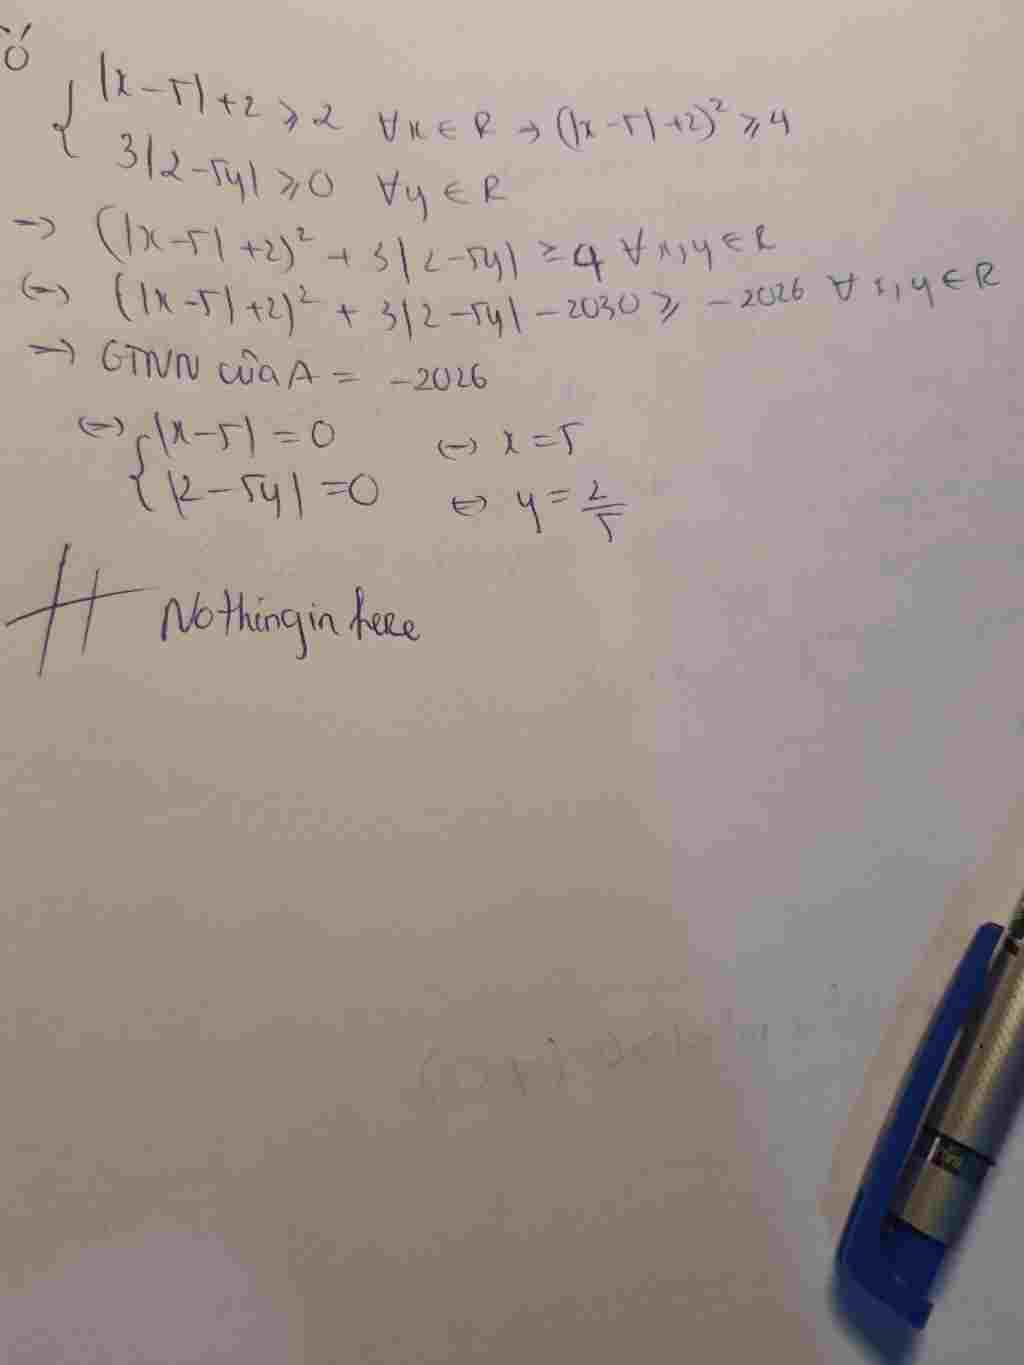 Có
{ |x-5|+2 ≥ 2 ∀x ∈ R → (|x-5|+2)² ≥ 4
3|2-5y| ≥ 0 ∀y ∈ R
→ (|x-5|+2)² + 3|2-5y| ≥ 4 ∀x,y ∈ R
(→) (|x-5|+2)² + 3|2-5y| - 2030 ≥ -2026 ∀x,y ∈ R
→ GTNN của A = -2026
(→) { |x-5| = 0 (→) x = 5
|2-5y| = 0 ⇔ y = 2/5
Nothing in here